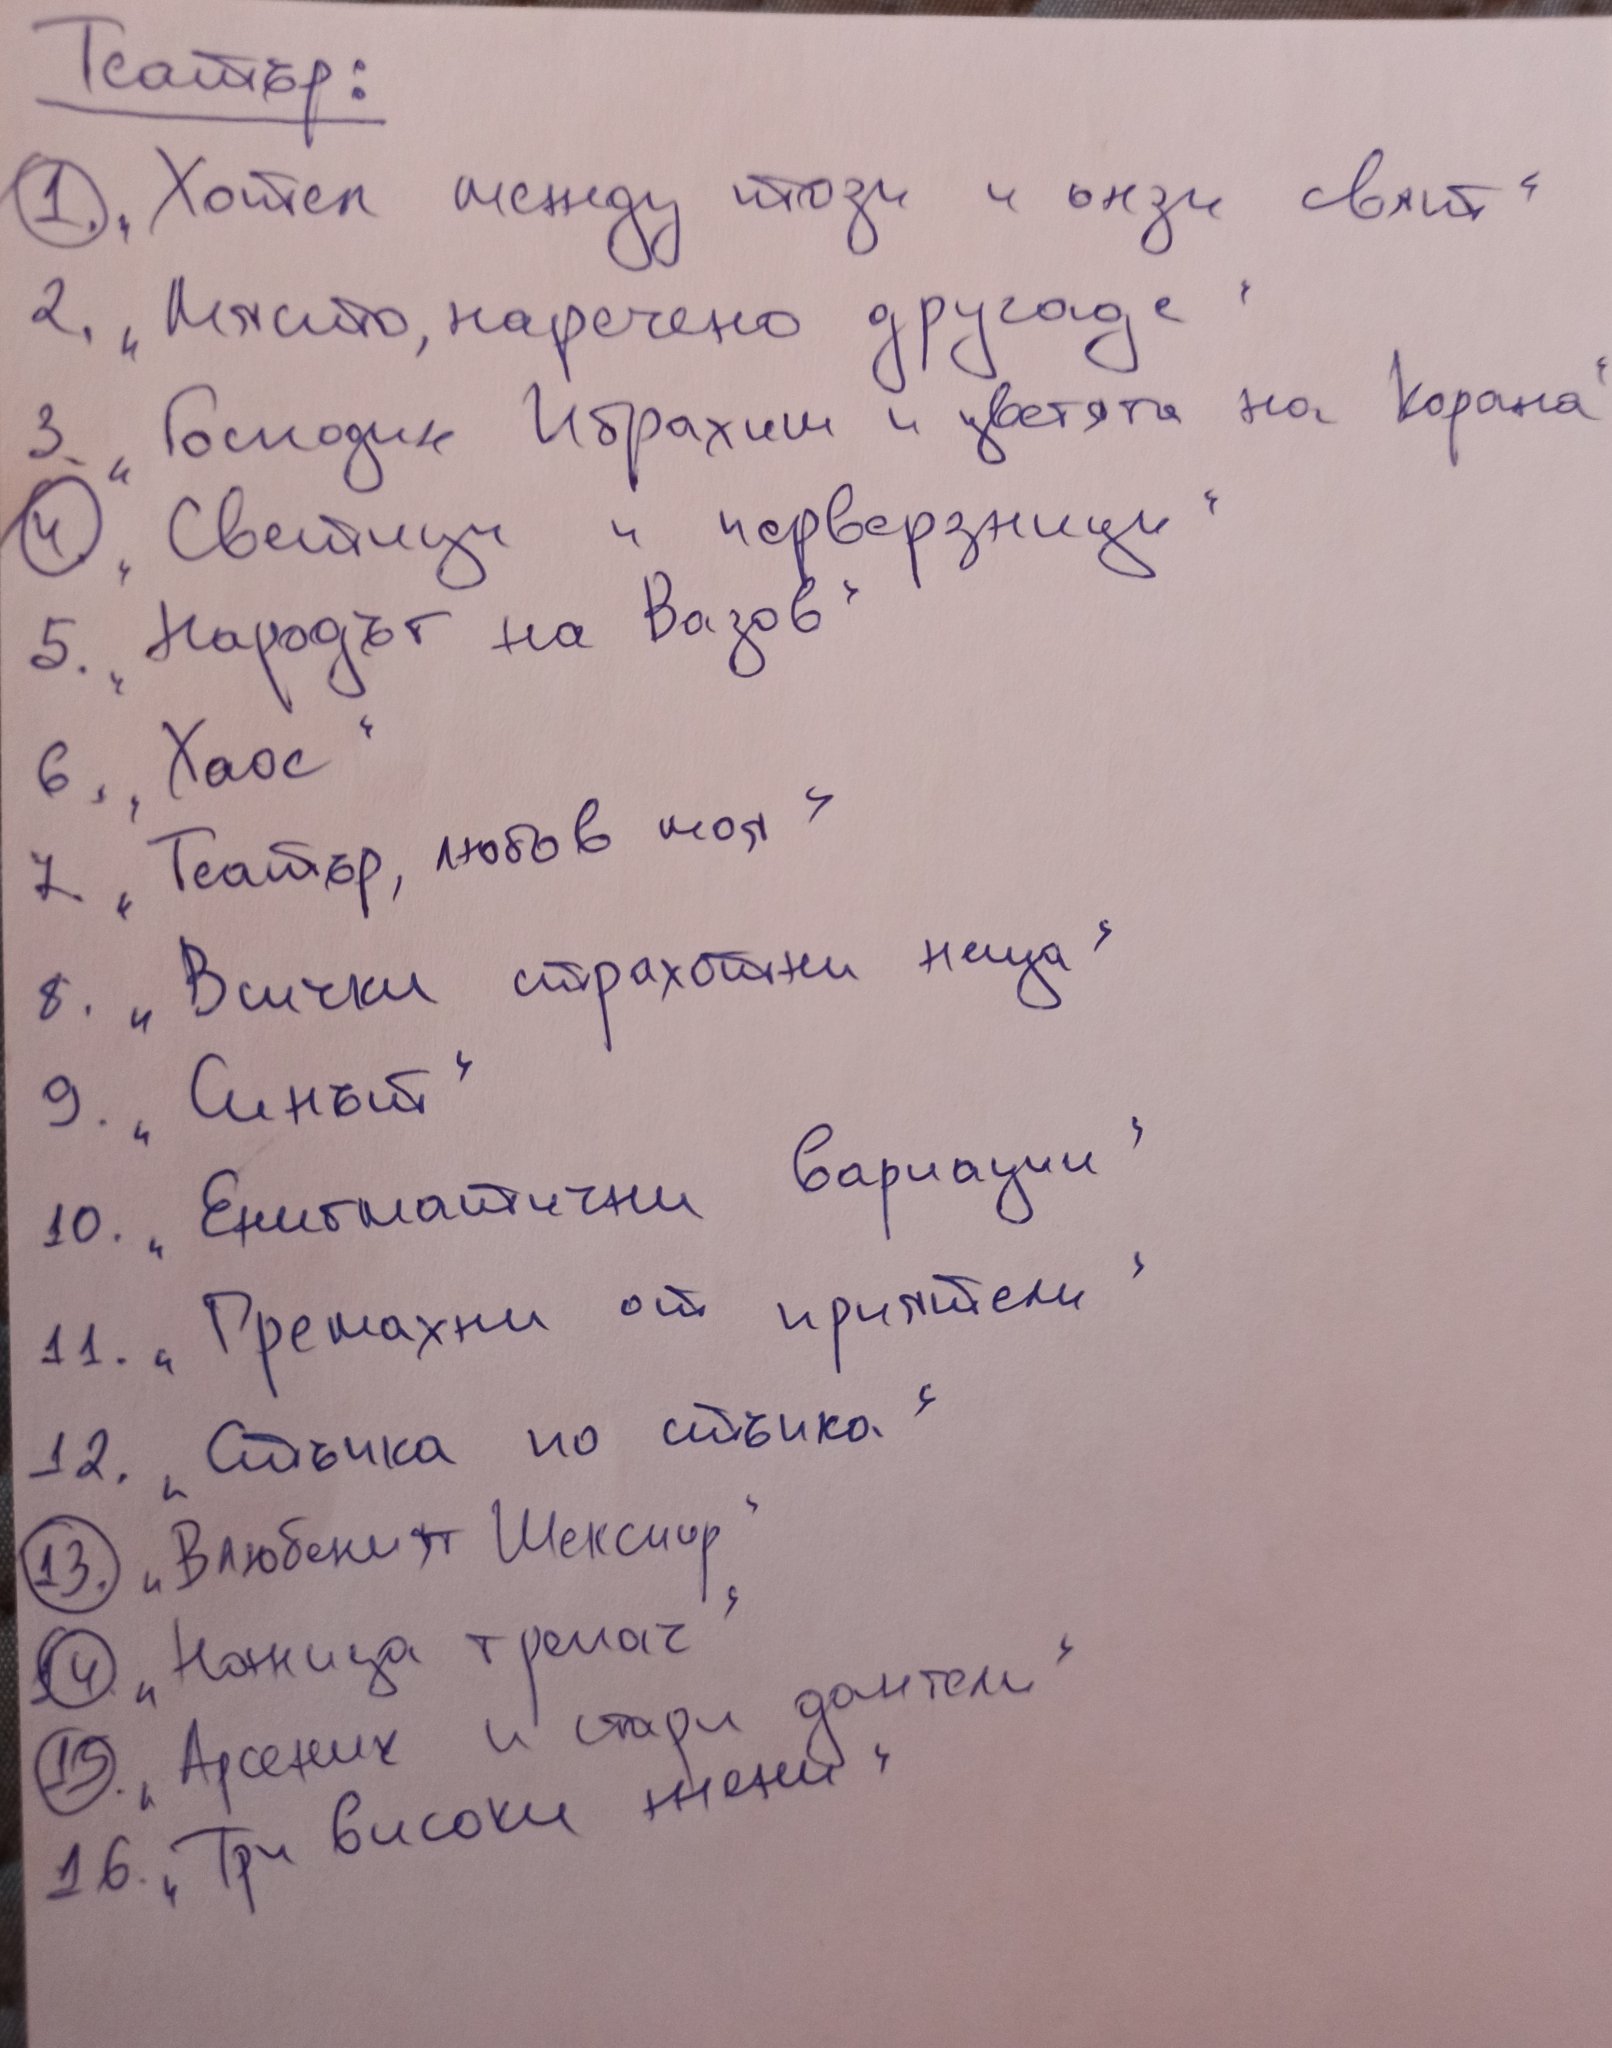 Театър:
1. „Хотел между този и онзи свят“
2. „Място, наречено другаде“
3. „Господин Ибрахим и цветята на Корана“
4. „Светици и перверзници“
5. „Народът на Вазов“
6. „Хаос“
7. „Театър, любов моя“
8. „Всички страхотни неща“
9. „Синът“
10. „Енигматични вариации“
11. „Премахни от приятели“
12. „Стъпка по стъпка“
13. „Влюбеният Шекспир“
14. „Ножица трепач“
15. „Арсеник и стари дантели“
16. „Три високи жени“